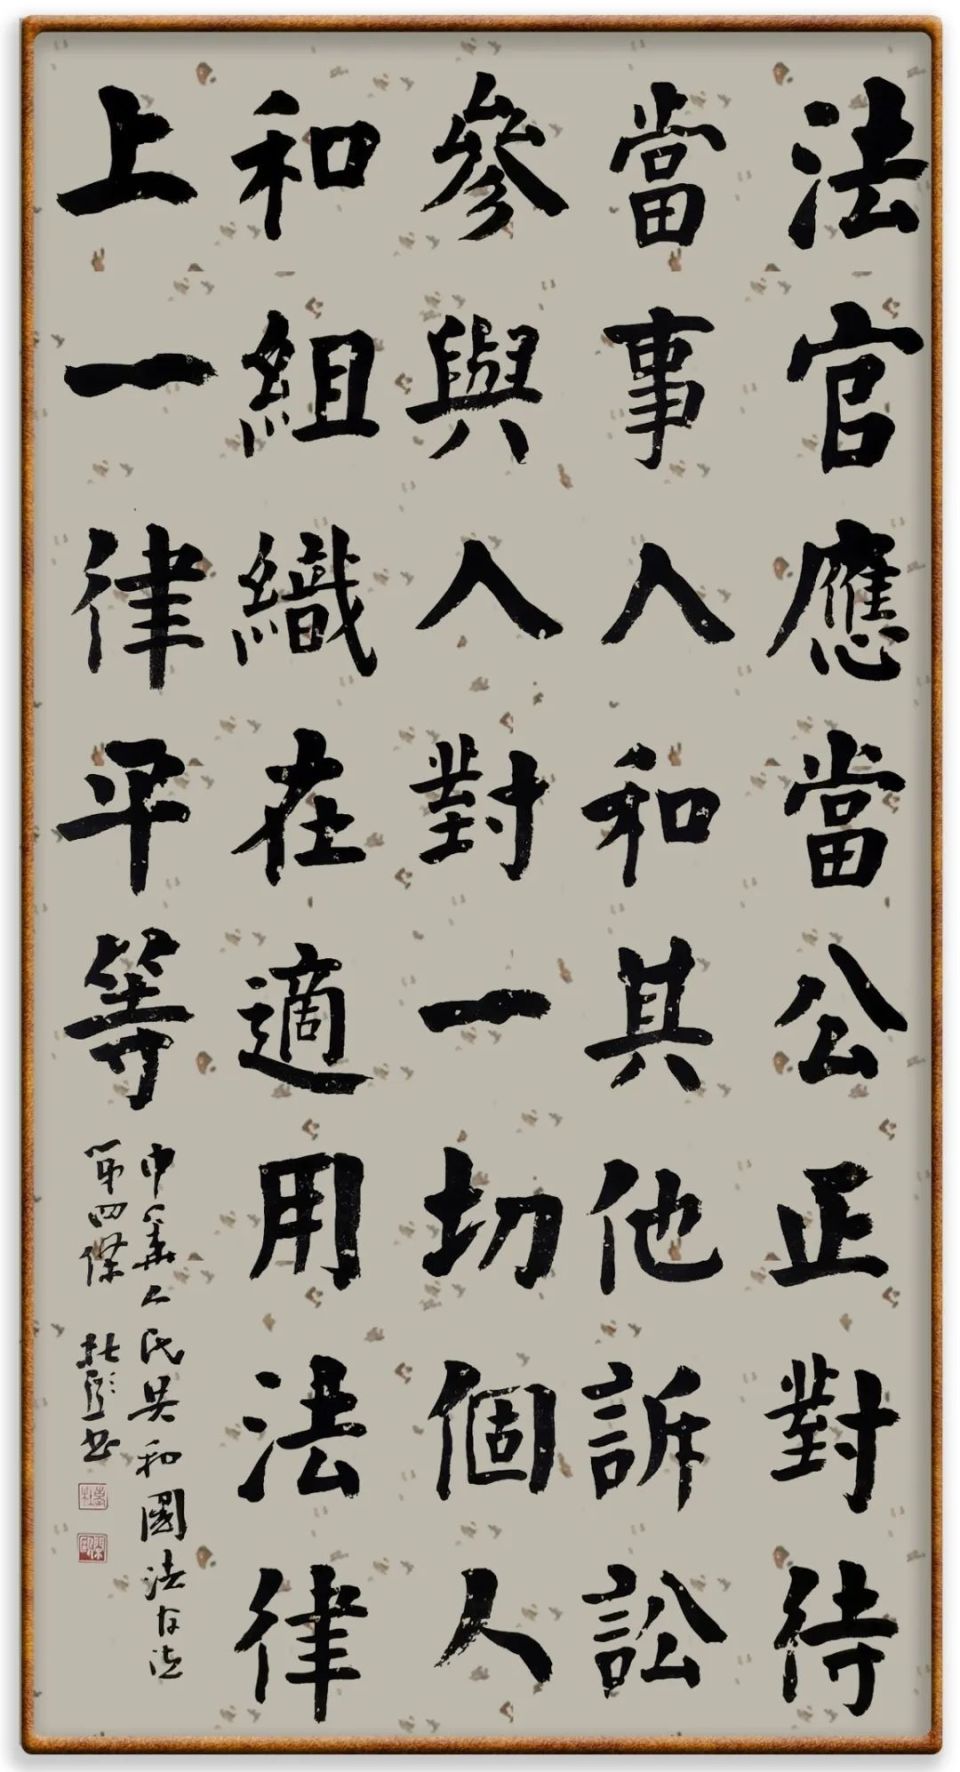 法官應當公正對待
當事人和其他訴訟
參與人對一切個人
和組織在適用法律
上一律平等
中華人民共和國法官法
第四條 杜
書